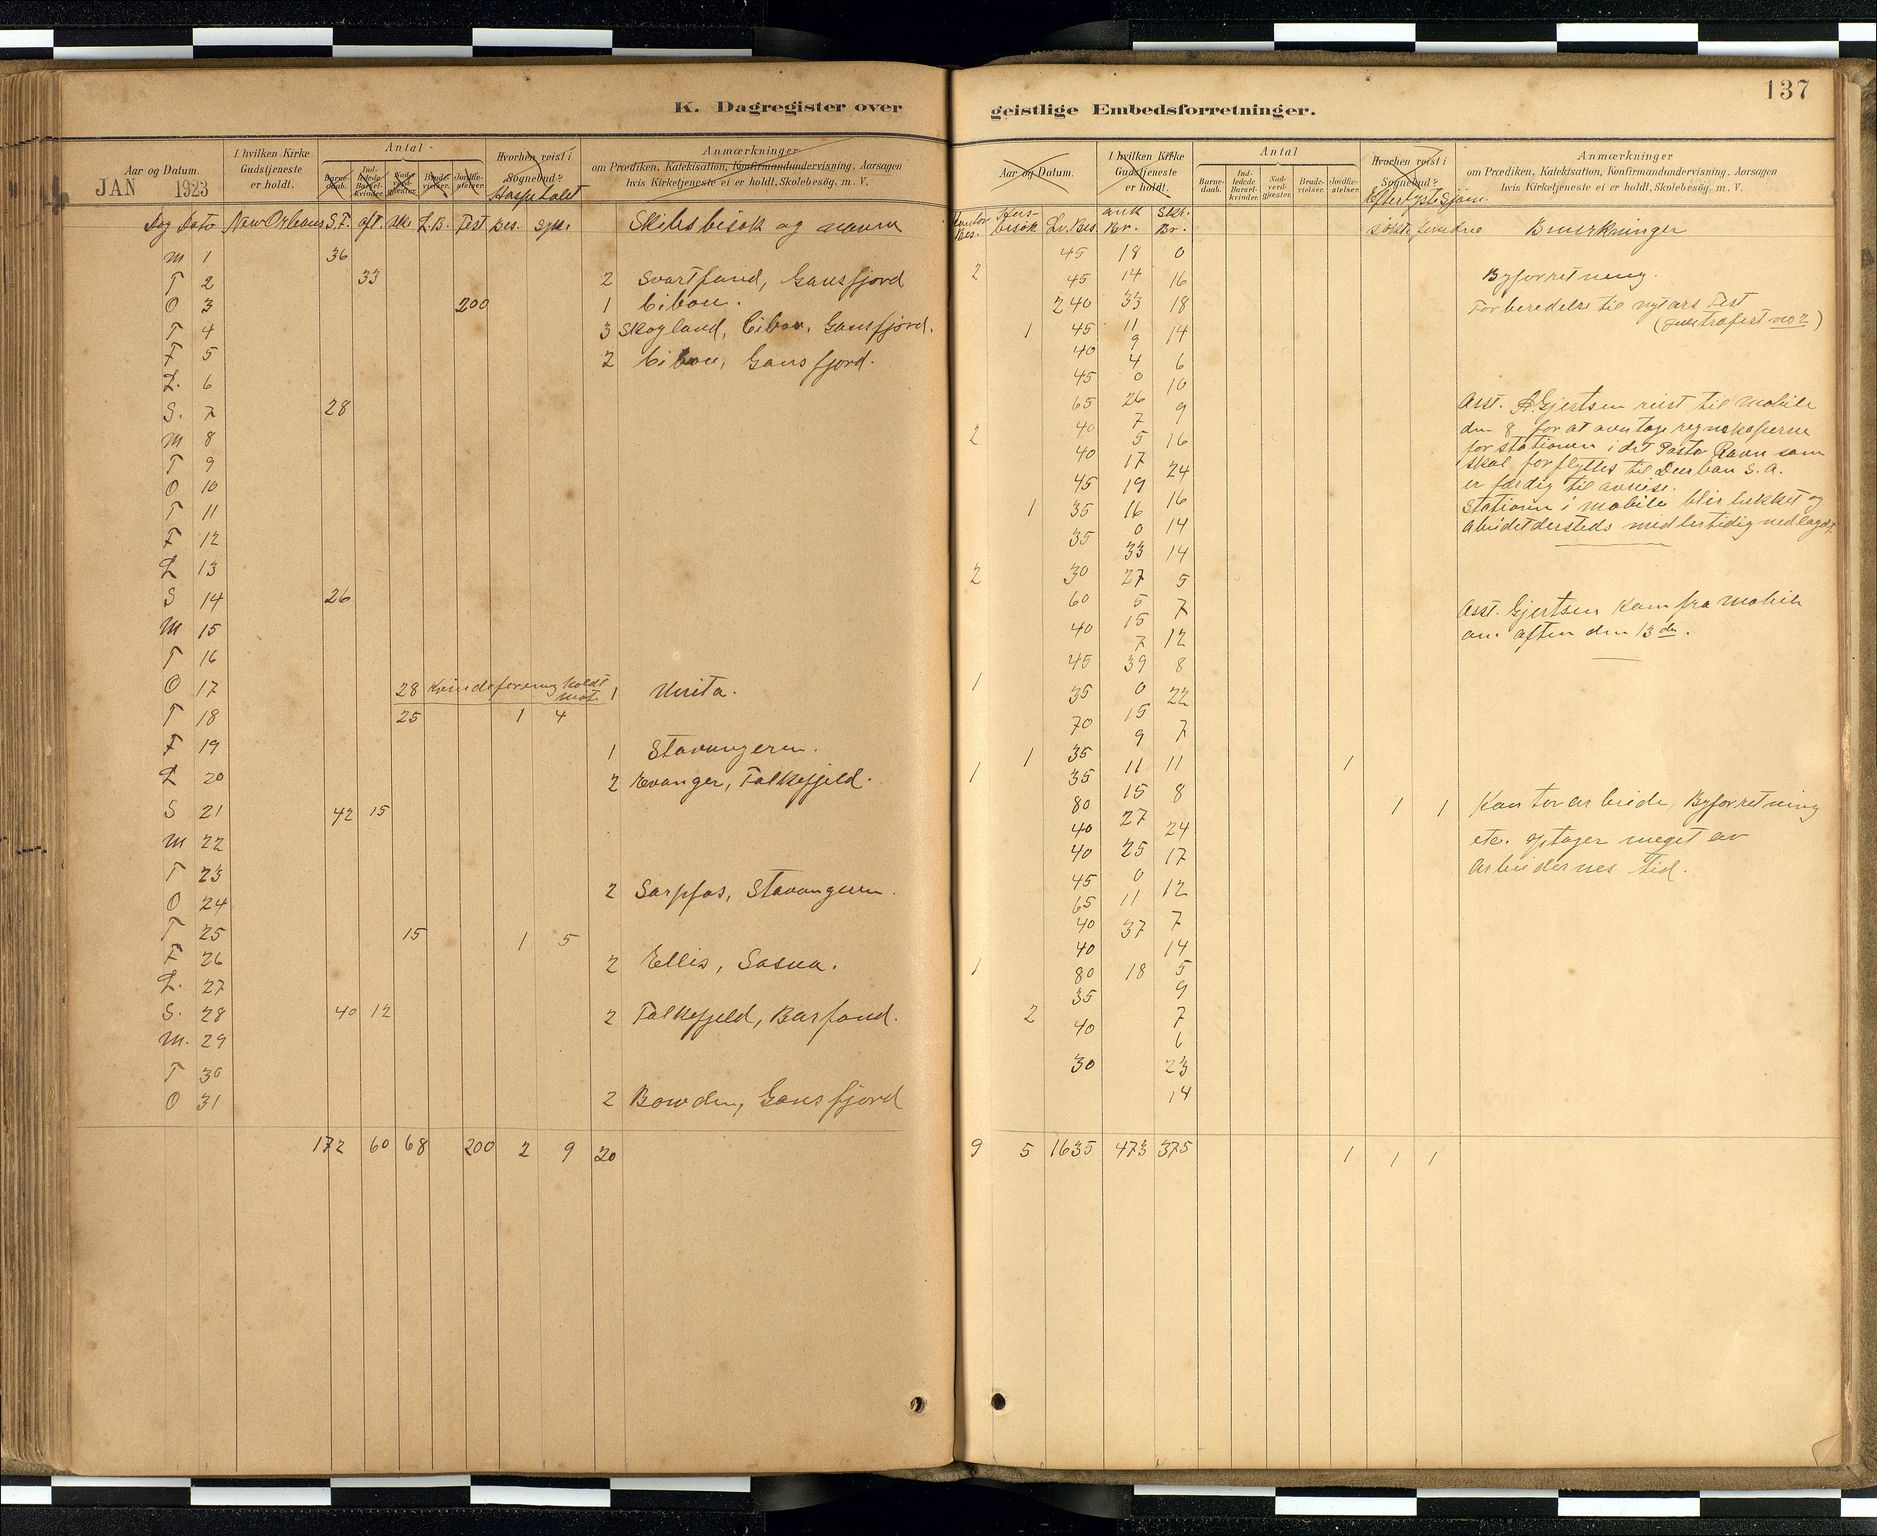 K. Dagregister over
Aar og Datum.
JAN 1923
I hvilken Kirke Gudstjeneste er holdt.
Antal
Barnedaab.
Indledede Barselkvinder.
Nadverdgjæster.
Brudevielser.
Jordfæstelser.
Hvorhen reist i Sognebud?
Hospitalet
Anmærkninger
om Prædiken, Katekisation, Konfirmandundervisning, Aarsagen hvis Kirketjeneste ei er holdt, Skolebesøg, m. V.
Dag Dato New Orleans S.F. aft. Uke L.B. Fest Bes. syke. Skibsbesøk og navn
M 1 36
T 2 33 2 Svartfond, Gansfjord
O 3 200 1 Cibou.
T 4 3 Skogland, Cibou, Gansfjord.
F 5 2 Cibou, Gansfjord.
L. 6
S. 7 28
M 8
T 9
O 10
T 11
F 12
L 13
S 14 26
M 15
T 16
O 17 28 Kvindeforening holdt møte 1 Unita.
T 18 25 1 4
F 19 1 Stavangeren.
L 20 2 Evanger, Falkefjeld.
S 21 42 15
M 22
T 23
O 24 2 Sarpfos, Stavangeren.
T 25 15 1 5
F 26 2 Ellis, Sosua.
L. 27
S. 28 40 12 2 Falkefjeld, Barfond.
M. 29
T 30
O 31 2 Bowden, Gansfjord
172 60 68 200 2 9 20
137
geistlige Embedsforretninger.
Aar og Datum.
I hvilken Kirke Gudstjeneste er holdt.
Antal
Barnedaab.
Indledede Barselkvinder.
Nadverdgjæster.
Brudevielser.
Jordfæstelser.
Hvorhen reist i Sognebud?
Efterlyste Sjøm.
Anmærkninger
om Prædiken, Katekisation, Konfirmandundervisning, Aarsagen hvis Kirketjeneste ei er holdt, Skolebesøg, m. V.
Kontor Bes. Husbesøk Lv. Bes ank Br. Skr. Br. søkte fundne Bmerkninger
45 18 0
2 45 14 16 Byforretning.
240 33 18 Forberedelse til nytårs Fest
1 45 11 14 (juletrefest no 2)
40 9 6
45 4 10
65 0 9
40 26 16
2 40 7 24
45 5 16
1 35 17 14
35 19 14
2 30 16 5
60 0 7
40 33 12
45 27 8
1 35 5 22
70 15 7
1 35 7 11 1
1 35 39 8
80 0 24 1 1
40 15 17
40 9 12
45 11 7
65 15 14
40 27 5
40 25 9
1 80 0 7
35 11 6
2 40 37 23
30 18 14
Asst. Gjertsen reist til Mobile
den 8 for at overtage regnskaperne
for stationen i det Pastor Ravn som
skal forflyttes til Durban S. A.
er færdig til avreise.
Stationen i Mobile blir lukket og
Arbeidet dersteds midlertidig nedlagt.
Asst. Gjertsen kom fra Mobile
om aften den 13 de.
Kontorarbeide, Byforretning
etc. optager meget av
Arbeidernes tid.
9 5 1635 473 375 1 1 1